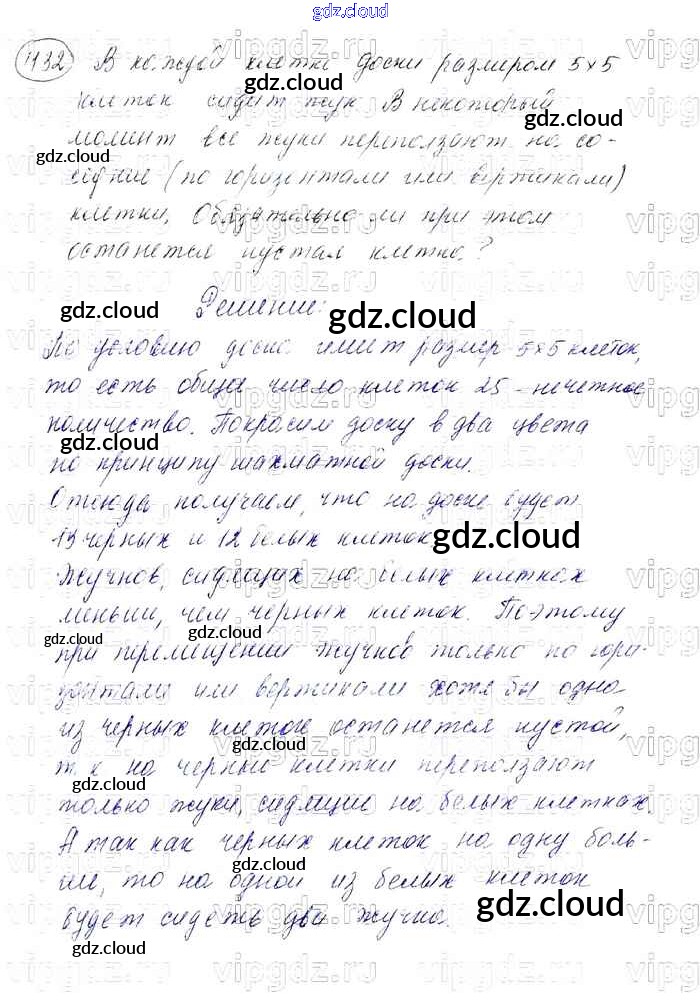 gdz.cloud
1132 В каждой клетке доски размером 5×5
клеток сидит жук. В некоторый
момент все жуки переползают на со-
седние (по горизонтали или вертикали)
клетки. Обязательно ли при этом
останется пустая клетка?
Решение:
По условию доска имеет размер 5×5 клеток,
то есть общее число клеток 25 - нечетное
количество. Покрасим доску в два цвета
по принципу шахматной доски.
Отсюда получаем, что на доске будет
13 черных и 12 белых клеток.
Жучков, сидящих на белых клетках
меньше, чем черных клеток. Поэтому
при перемещении жучков только по гори-
зонтали или вертикали хотя бы одна
из черных клеток останется пустой,
т.к на черные клетки переползают
только жуки, сидящие на белых клетках.
А так как черных клеток на одну боль-
ше, то на одной из белых клеток
будет сидеть два жучка.